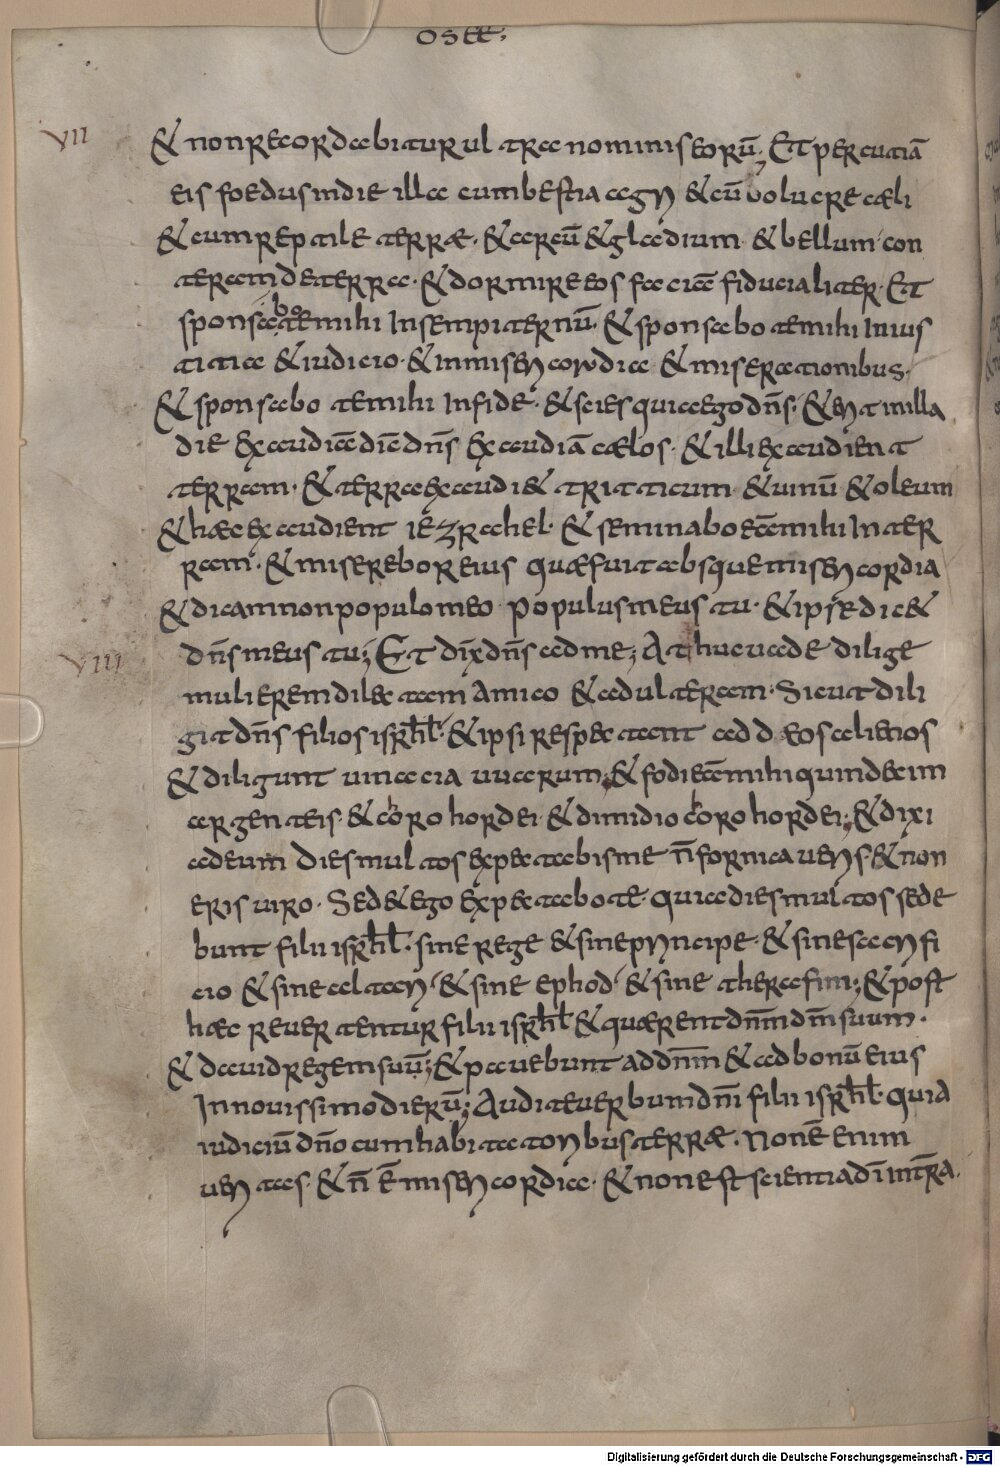 OSEE;
VII
& non recordabitur ultra nominis eorū; Et percutiā
eis foedus in die illa cum bestia agri & cū volucre cæli
& cum reptile terræ. & arcū & gladium & bellum con
teram de terra. & dormire eos faciā fiducialiter. Et
sponsabo te mihi In sempiternū. & sponsabo te mihi In ius
titia & iudicio. & In misericordia & miserationibus.
& sponsabo te mihi In fide. & scies quia ego dn̄s. & erit in illa
die exaudiā diē dn̄s exaudiā cælos. & illi exaudient
terram. & terra exaudi& triticum & vinū & oleum
& hæc exaudient iezrahel. & seminabo eā mihi In ter
ram. & miserebor eius quæ fuit absque misericordia
& dicam non populo meo populus meus tu. & ipse dic&
VIII
dn̄s meus tu; Et dix̄ dn̄s ad me; Athuc vade dilige
mulierem dilectam amico & adulteram. Sicut dili
git dn̄s filios isrħl. & ipsi respectant ad deos alienos
& diligunt vinacia uuarum; & fodi eā mihi quindecim
argenteis. & coro hordei & dimidio coro hordei; & dixi
ad eum dies multos expectabis me n̄ fornicaueris. & non
eris uiro. Sed & ego expectabo te. quia dies multos sede
bunt filii isrħl. sine rege & sine principe. & sine sacrifi
cio & sine altari & sine ephod & sine therafim; & post
hæc reuertentur filii isrħl & quærent dn̄m dm̄ suum.
& dauid regem suū; & pauebunt ad dn̄m & ad bonū eius
In nouissimo dierū; Audite uerbum dn̄i filii isrħl. quia
iudiciū dn̄o cum habitatoribus terræ. Non ē enim
ueritas. & n̄ ē misericordia. & non est scientia dī in tr̄a.
Digitalisierung gefördert durch die Deutsche Forschungsgemeinschaft - DFG